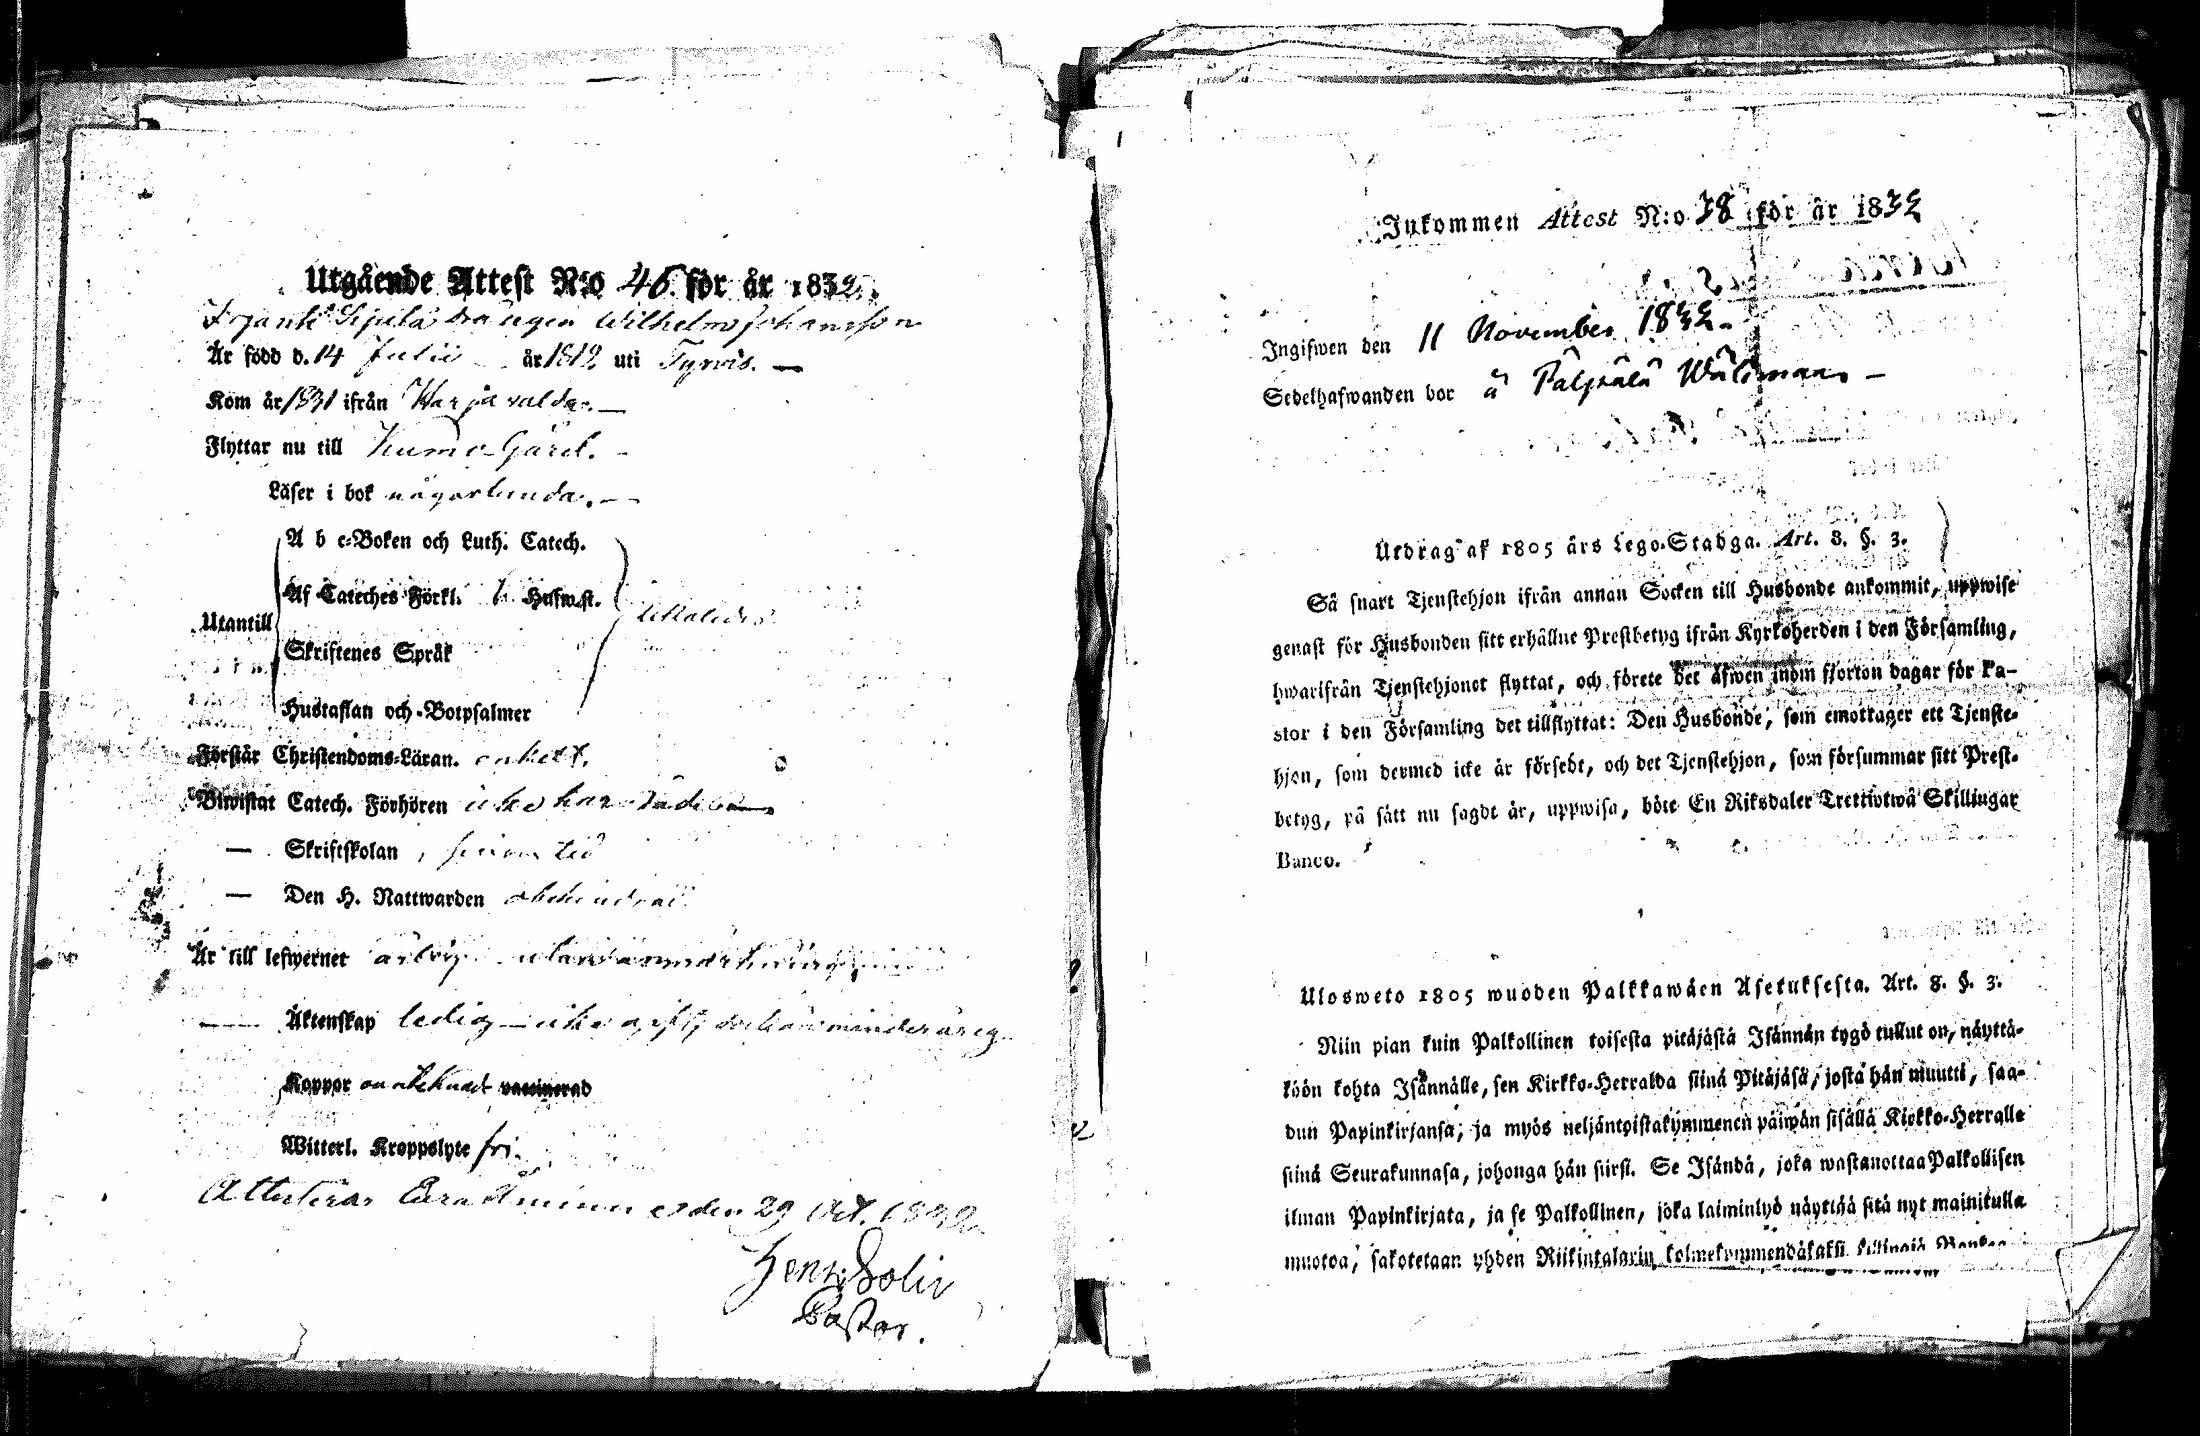 Utgående Attest N:o 46. för år 1832.
Sipilä drängen Wilhelm Johansson
Är född d. 14 Julii år 1812 uti Tyrvis.
Kom år 1831 ifrån Harjavalda.
Flyttar nu till Kumo Gård.
Läser i bok någorlunda.
A b c-Boken och Luth. Catech.
Af Cateches Förkl. Husw.st.
Utantill
Skriftenes Språk
Hustaflan och Botpsalmer
Förstår Christendoms-Läran. enkelt.
Biwistat Catech. Förhören icke har
— Skriftskolan, sin tid
— Den H. Nattwarden obehindrad
Är till lefwernet ärlig utan anmärkning
— Äktenskap ledig icke minderårig.
Koppor vaccinerad
Witterl. Kroppslyte fri.
Attesterar den 29 Oct. 1832.
Henr. Bolin
Pastor.
Inkommen Attest N:o 38 för år 1832
Ingifwen den 11 November 1832.
Sedelhafwanden bor å
Utdrag af 1805 års Lego-Stadga. Art. 8. §. 3.
Så snart Tjenstehjon ifrån annan Socken till Husbonde ankommit, uppwise
genast för Husbonden sitt erhållne Prestbetyg ifrån Kyrkoherden i den Församling,
hwarifrån Tjenstehjonet flyttat, och förete det äfwen inom fjorton dagar för Pa-
stor i den Församling det tillflyttat: Den Husbonde, som emottager ett Tjenste-
hjon, som dermed icke är försedt, och det Tjenstehjon, som försummar sitt Prest-
betyg, på sätt nu sagdt är, uppwisa, böte En Riksdaler Trettiotwå Skillingar
Banco.
Ulosweto 1805 wuoden Palkkawäen Asetuksesta. Art. 8. §. 3.
Niin pian kuin Palkollinen toisesta pitäjästä Isännän tygö tullut on, näyttä-
köön kohta Isännälle, sen Kirkko-Herralda siinä Pitäjäsä, josta hän muutti, saa-
dun Papinkirjansa; ja myös neljäntoistakymmenen päiwän sisällä Kirkko-Herralle
siinä Seurakunnasa, johonga hän siirst. Se Isändä, joka wastanottaa Palkollisen
ilman Papinkirjata, ja se Palkollinen, joka laiminlyö näyttää sitä nyt mainitulla
muotoa, sakotetaan yhden Riikintalarin kolmekymmendäkaksi killingiä Bankoa